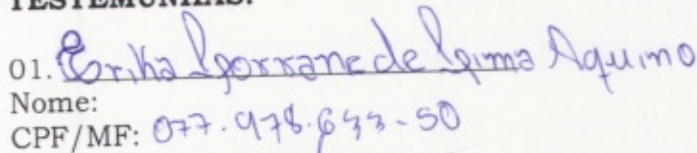 TESTEMUNHAS:
01. Erika Lorrane de Lima Aquino
Nome:
CPF/MF: 077.978.633-50